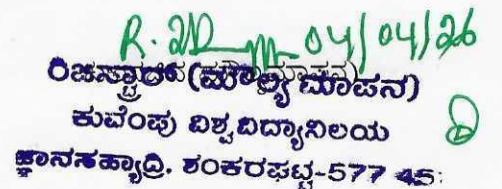 04/04/26
ರಿಜಿಸ್ಟ್ರಾರ್ (ಮೌಲ್ಯಮಾಪನ)
ಕುವೆಂಪು ವಿಶ್ವವಿದ್ಯಾನಿಲಯ
ಜ್ಞಾನಸಹ್ಯಾದ್ರಿ. ಶಂಕರಘಟ್ಟ-577 45